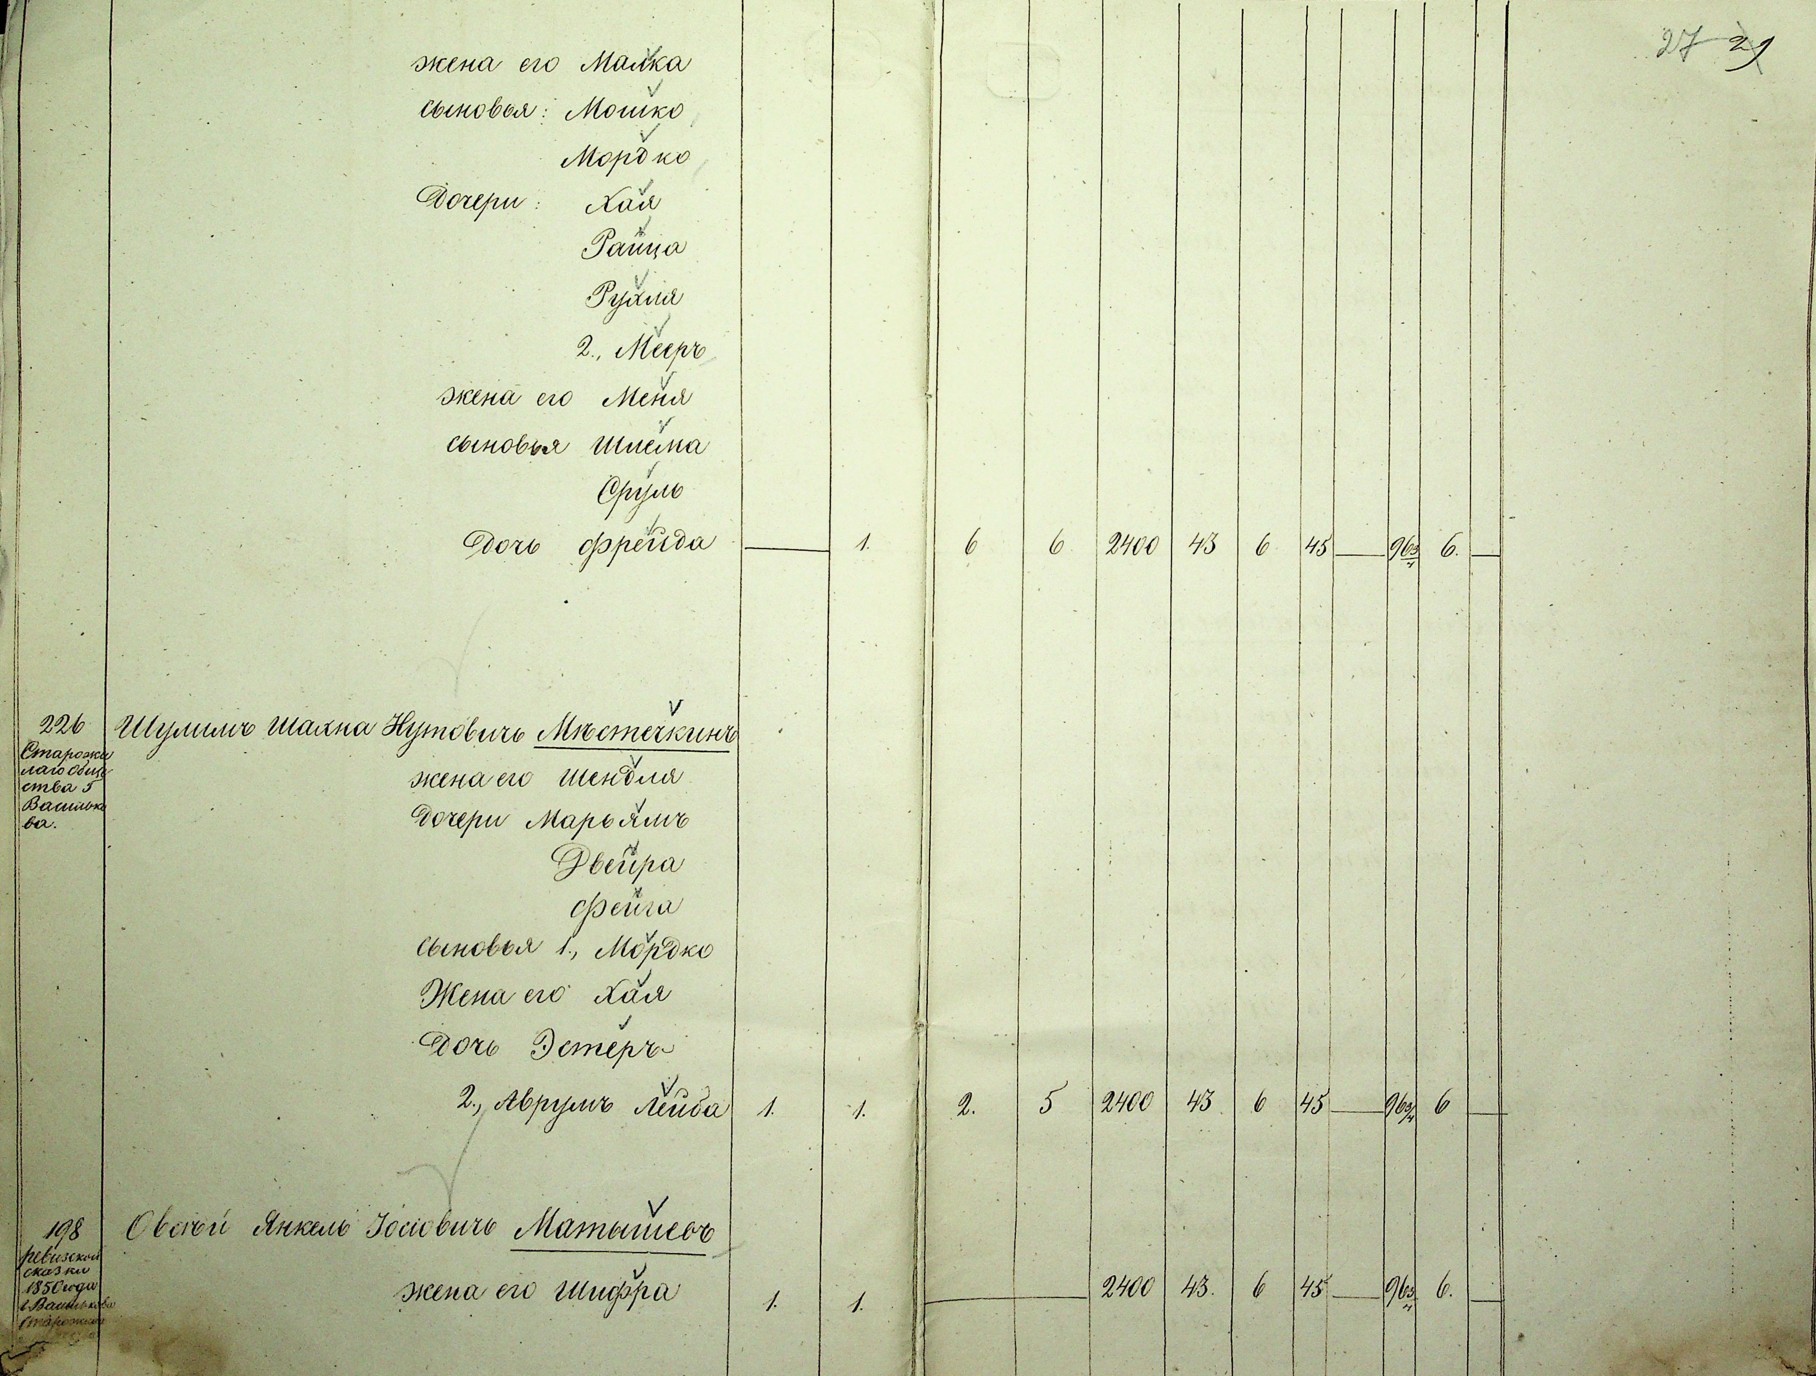 27 29
жена его Малка
сыновья: Мошко
Мордко
Дочери: Хая
Райца
Рухля
2., Мееръ
жена его Меня
сыновья Шлема
Сруль
Дочь Фрейда — 1. 6 6 2400 43 6 45 — 96 3/4 6. —
226 Шулимъ Шахна Нутовичъ Мѣстечкинъ
Старожи
лаго Общ
ства 5
Василько
ва.
жена его Шендля
Дочери Марьямъ
Двейра
Фейга
сыновья 1., Мордко
Жена его Хая
Дочь Эстеръ
2., Аврумъ Лейба 1. 1. 2. 5 2400 43 6 45 — 96 3/4 6 —
198 Овсѣй Янкель Іосіовичъ Матышевъ
ревизской
сказки
1850 года
г. Василькова
Старожил
жена его Шифра 1. 1. — 2400 43. 6 45 — 96 3/4 6. —